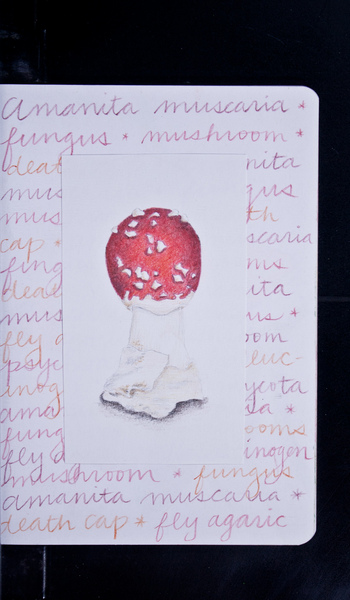 amanita muscaria *
fungus * mushroom *
deat nita
mus gus
mus th
cap * scaria
fung ms
deat ita
mus us *
fly a oom
psyc luc-
inog ycota
ama ia *
fung ooms
fly a inogen
mushroom * fungus
amanita muscaria *
death cap * fly agaric